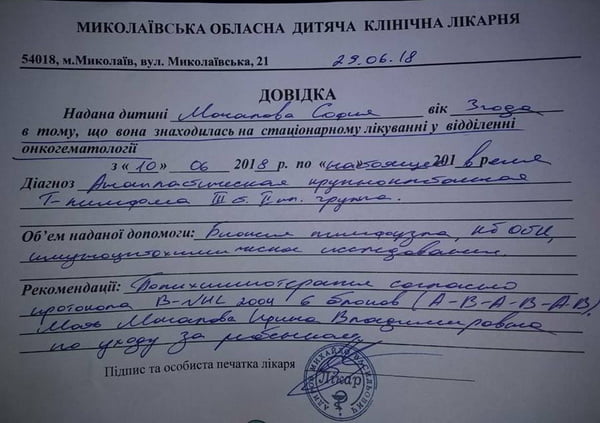 МИКОЛАЇВСЬКА ОБЛАСНА ДИТЯЧА КЛІНІЧНА ЛІКАРНЯ
54018, м.Миколаїв, вул. Миколаївська, 21 29.06.18
ДОВІДКА
Надана дитині София вік 3 года
в тому, що вона знаходилась на стаціонарному лікуванні у відділенні
онкогематології
з «10» 06 2018 р. по «настоящее 201 время
Діагноз Анапластическая крупноклеточная
Т-лимфома III ст. II гр. группа.
Об'ем наданої допомоги: Биопсия лимфоузла,
иммуноцитохимическое исследование.
Рекомендації: Полихимиотерапия согласно
протокола B-NHL 2004 6 блоков (А-В-А-В-А-В).
Мать Ирина Владимировна
по уходу за ребенком
Підпис та особиста печатка лікаря
Лікар